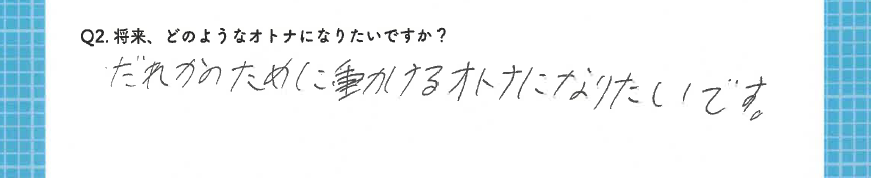 Q2. 将来、どのようなオトナになりたいですか？
だれかのために動けるオトナになりたいです。